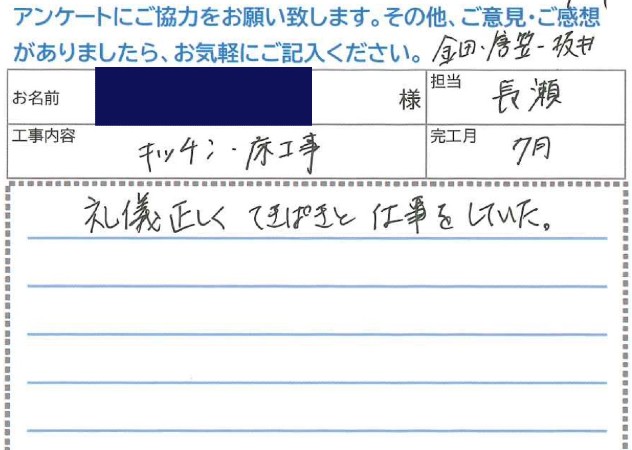 アンケートにご協力をお願い致します。その他、ご意見・ご感想
がありましたら、お気軽にご記入ください。 金田・唐笠-坂井
お名前 様 担当 長瀬
工事内容 キッチン・床工事 完工月 7月
礼儀正しく てきぱきと 仕事をしていた。